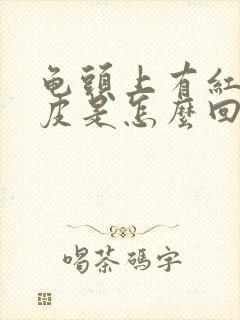 龟頭上有紅
皮是怎麽回
喝茶碼字